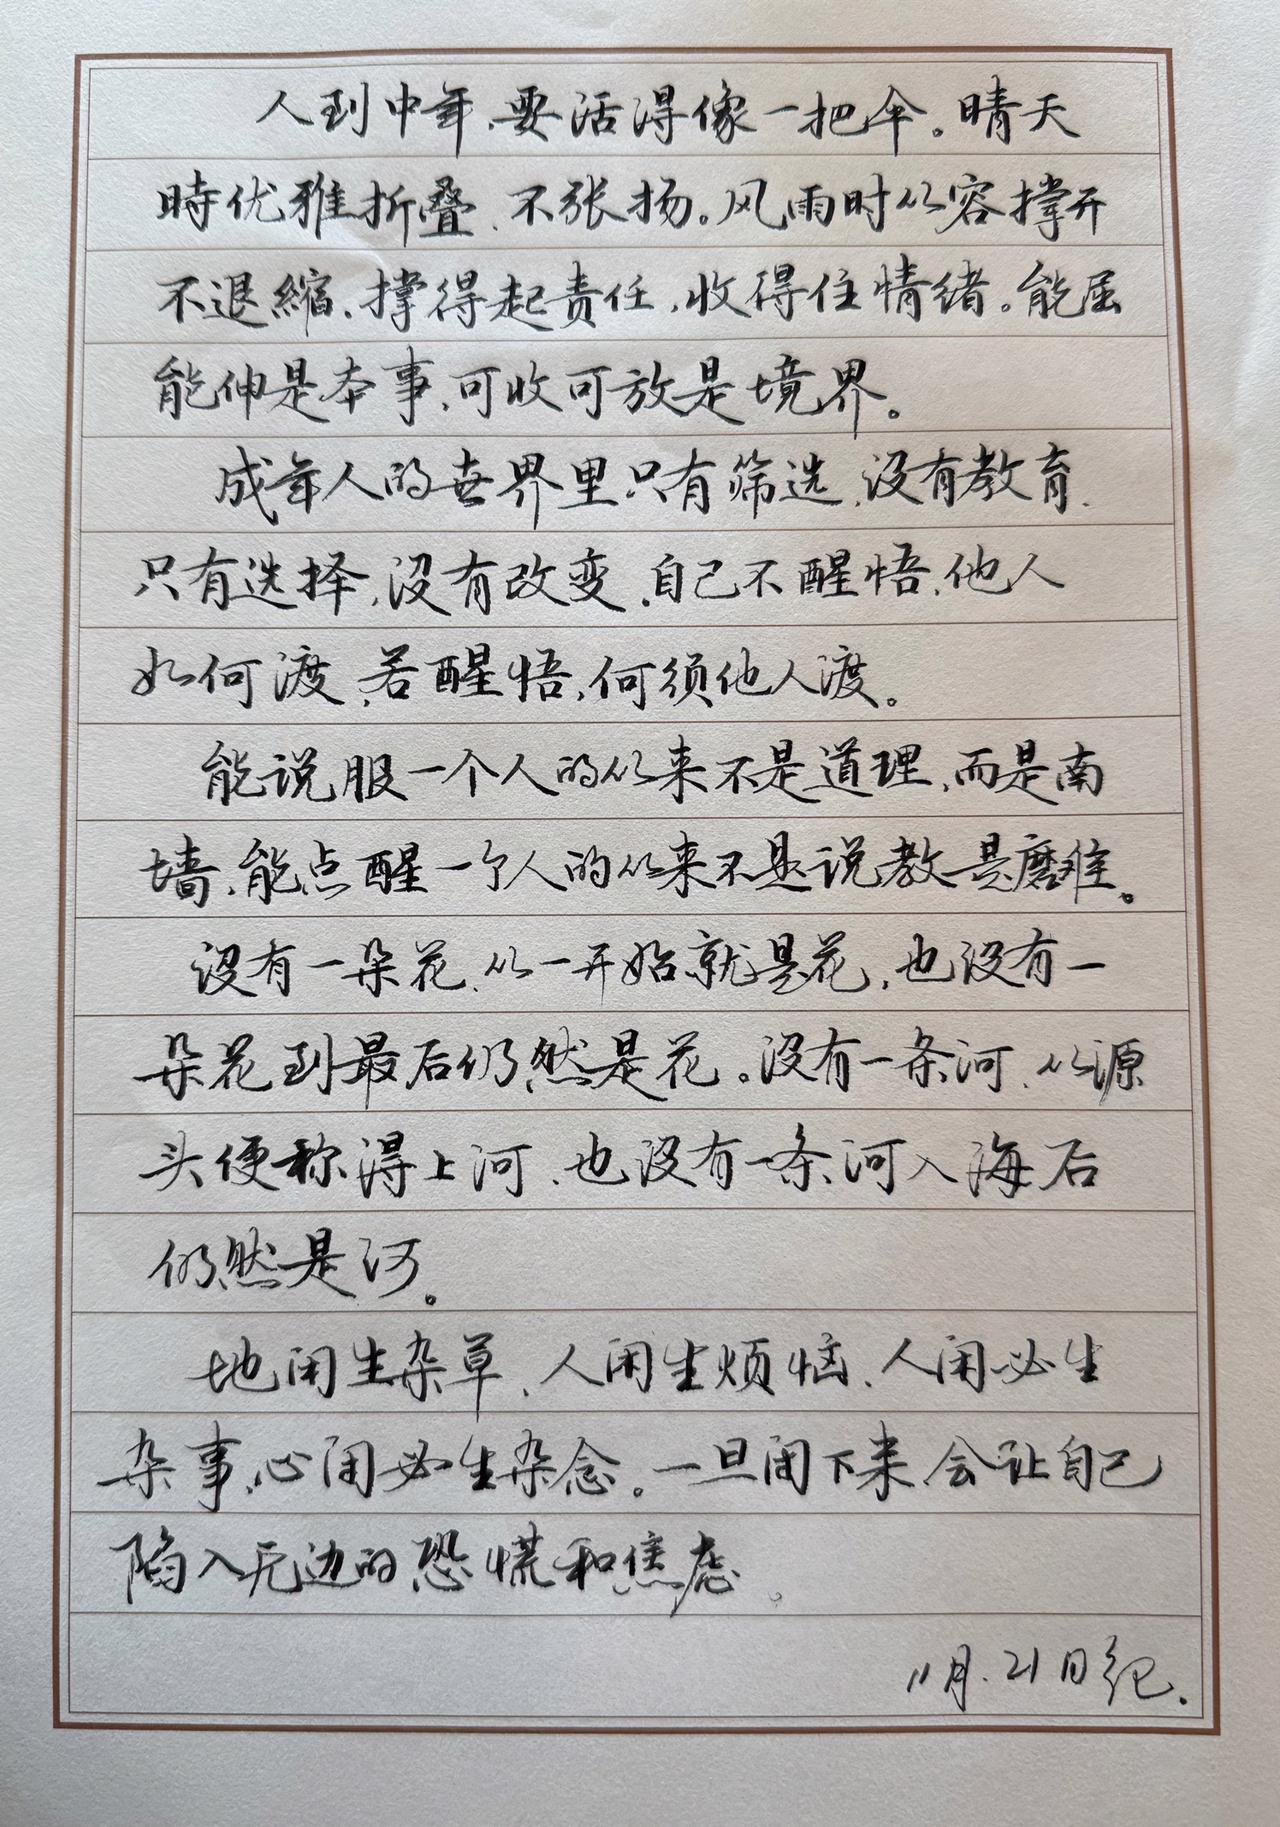 人到中年，要活得像一把伞。晴天
時优雅折叠，不张扬。风雨时从容撑开
不退縮，撑得起责任，收得住情绪。能屈
能伸是本事，可收可放是境界。
成年人的世界里只有筛选，没有教育，
只有选择，没有改变，自己不醒悟，他人
如何渡，若醒悟，何须他人渡。
能说服一个人的从来不是道理，而是南
墙，能点醒一个人的从来不是说教是磨难。
没有一朵花，从一开始就是花，也没有一
朵花到最后仍然是花。没有一条河，从源
头便称得上河，也没有一条河入海后
仍然是河。
地闲生杂草，人闲生烦恼，人闲必生
杂事，心闲必生杂念。一旦闲下来会让自己
陷入无边的恐慌和焦虑。
11月.21日纪.